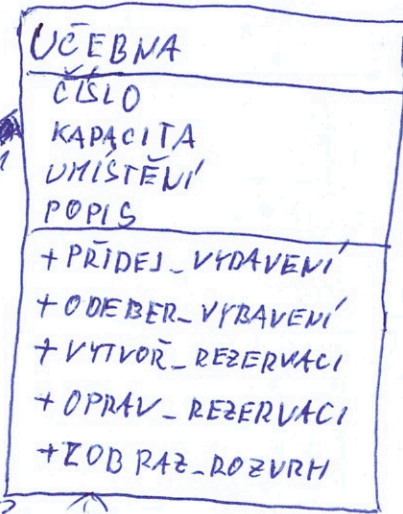 UČEBNA
ČÍSLO
KAPACITA
UMÍSTĚNÍ
POPIS
+PŘIDEJ_VYBAVENÍ
+ODEBER_VYBAVENÍ
+VYTVOŘ_REZERVACI
+OPRAV_REZERVACI
+ZOBRAZ_ROZVRH